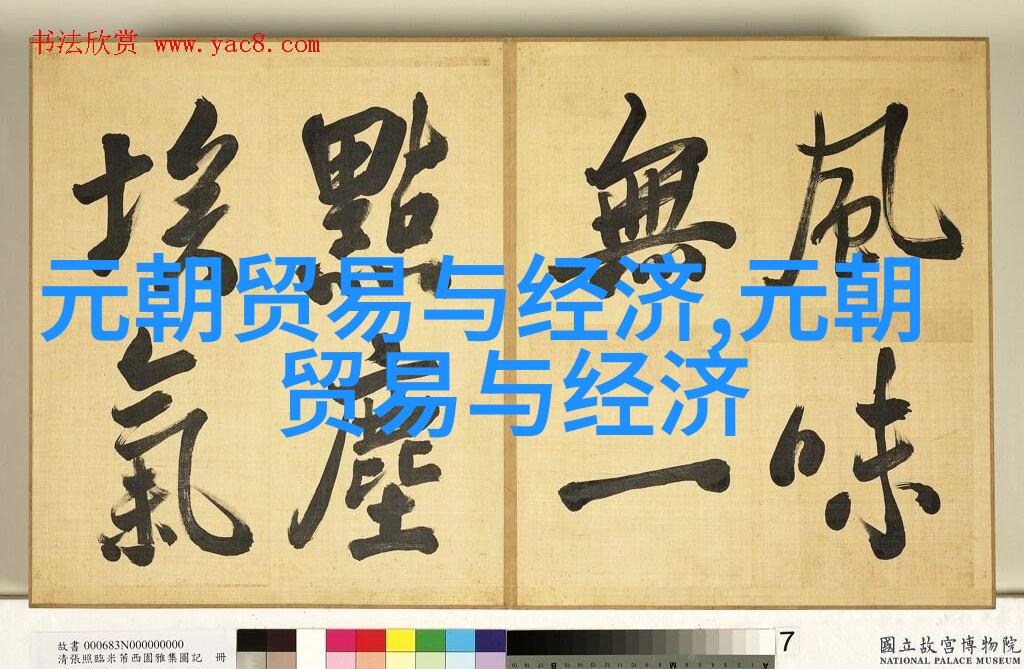 书法欣赏 www.yac8.com
風味
無一
點塵
埃氣
元朝贸易与经济,元朝
贸易与经济
故書 000683N000000000
清張照臨米芾西園雅集圖記 冊
7
國立故宮博物院
NATIONAL PALACE MUSEUM